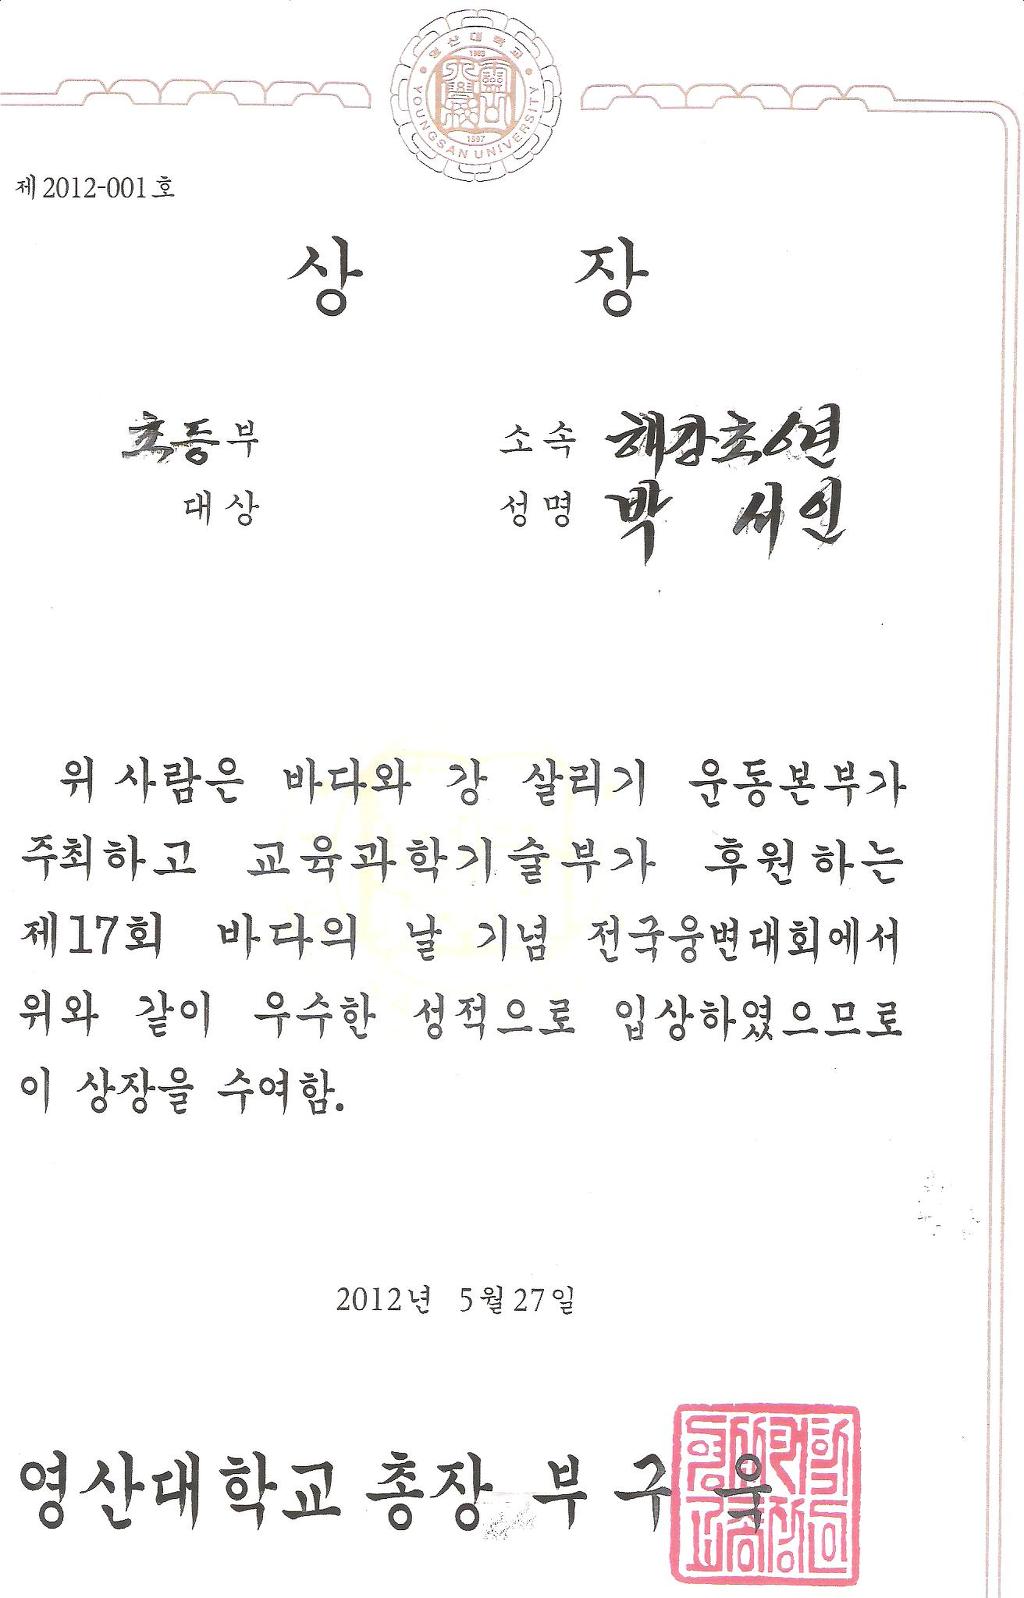 영산대학교
1983
YOUNGSAN UNIVERSITY
1997
제2012-001호
상 장
초등부 소속 해강초6년
대상 성명 박 서인
위 사람은 바다와 강 살리기 운동본부가
주최하고 교육과학기술부가 후원하는
제17회 바다의 날 기념 전국웅변대회에서
위와 같이 우수한 성적으로 입상하였으므로
이 상장을 수여함.
2012년 5월 27일
영산대학교 총장 부구욱